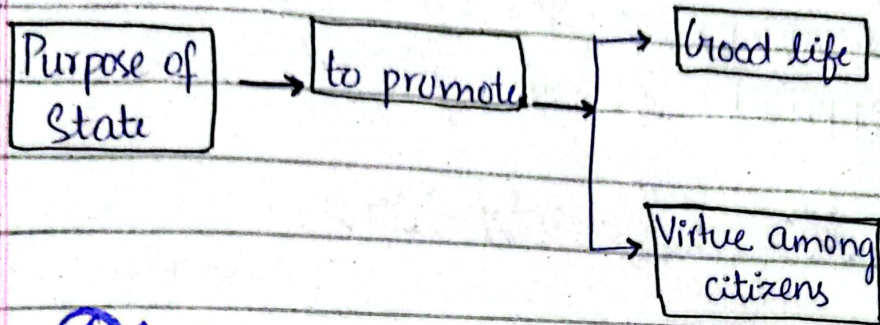 Purpose of
State
to promote
Good life
Virtue among
citizens